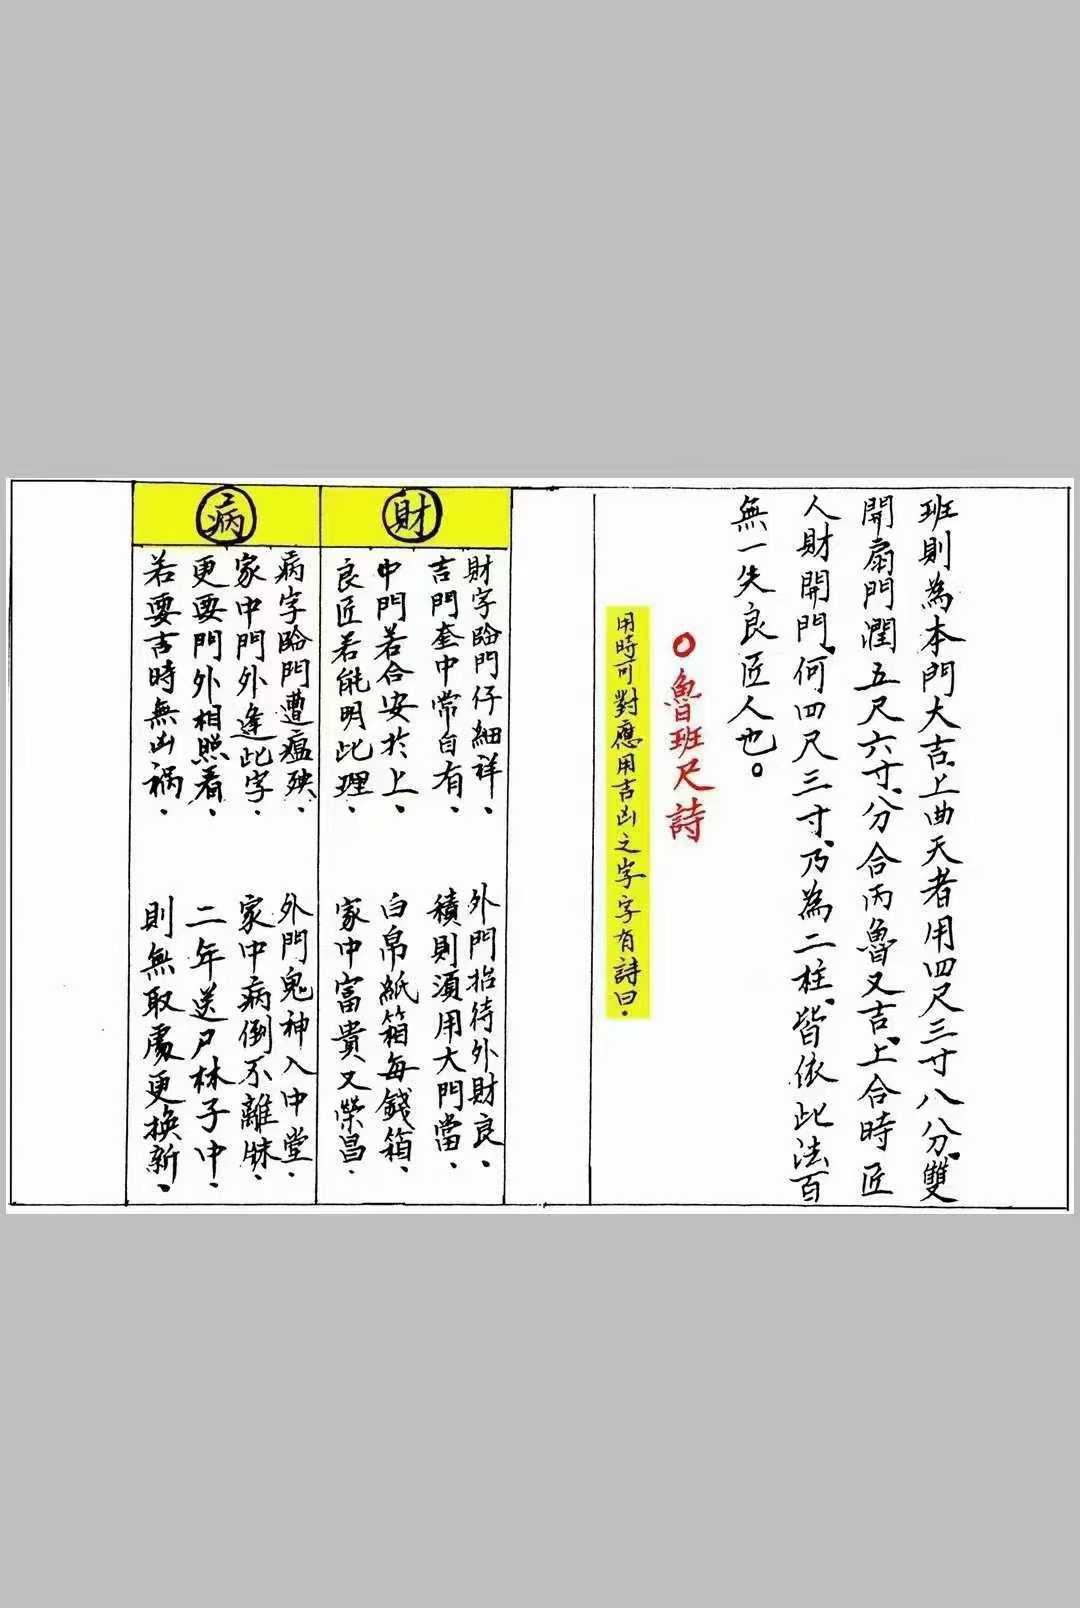 班則為本門大吉上曲天者用四尺三寸八分、雙
開扇門潤五尺六寸、八分合丙魯又吉、上合時匠
人財開門、何四尺三寸、乃為二柱、皆依此法百
無一失良匠人也。
○魯班尺詩
用時可對應用吉凶之字字有詩曰.
財
財字臨門仔細祥、外門招待外財良、
吉門奎中常自有、積則須用大門當、
中門若合安於上、白帛紙箱每錢箱、
良匠若能明此理、家中富貴又榮昌.
病
病字臨門遭瘟殃、外門鬼神入中堂.
家中門外逢此字、家中病倒不離牀.
更要門外相照看、二年送尸林子中.
若要吉時無凶祸.則無取處更换新.